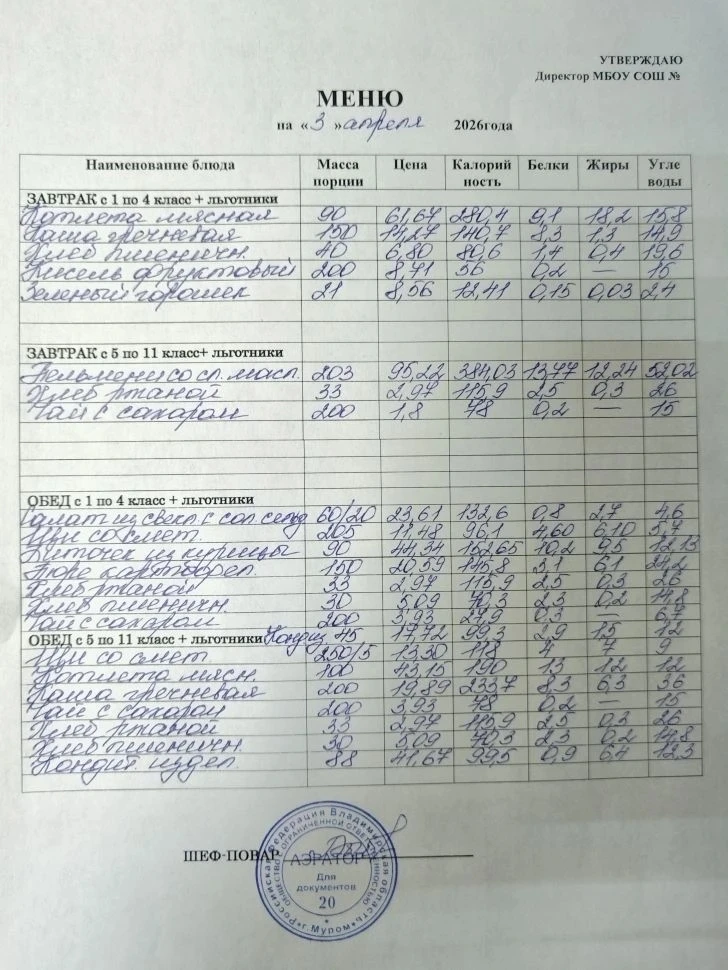 УТВЕРЖДАЮ
Директор МБОУ СОШ №
МЕНЮ
на «3 »апреля 2026года
Наименование блюда Масса порции Цена Калорий ность Белки Жиры Угле воды
ЗАВТРАК с 1 по 4 класс + льготники
Котлета мясная 90 61,67 280,4 9,1 18,2 15,8
Каша гречневая 150 14,27 140,7 8,3 1,3 14,9
Хлеб пшеничн. 40 6,80 80,6 1,4 0,4 19,6
Кисель фруктовый 200 8,71 56 0,2 — 15
Зеленый горошек 21 8,56 12,41 0,15 0,03 2,4
ЗАВТРАК с 5 по 11 класс+ льготники
Пельмени со сл. масл. 203 95,22 384,03 13,77 12,24 52,02
Хлеб ржаной 33 2,97 115,9 2,5 0,3 26
Чай с сахаром 200 1,8 48 0,2 — 15
ОБЕД с 1 по 4 класс + льготники
Салат из свекл. с сол. 60/20 23,61 132,6 0,8 2,7 4,6
Щи со смет. 205 11,48 96,1 4,60 6,10 5,7
Биточек из курицы 90 44,34 152,65 10,2 9,5 12,13
Пюре картофел. 150 20,59 145,8 3,1 6,1 24,2
Хлеб ржаной 33 2,97 115,9 2,5 0,3 26
Хлеб пшеничн. 30 5,09 40,3 2,3 0,2 14,8
Чай с сахаром 200 3,93 24,9 0,3 — 6,7
ОБЕД с 5 по 11 класс + льготники Кондиз 45 17,72 99,3 2,9 15 12
Щи со смет. 250/5 13,30 118 4 7 9
Котлета мясн. 100 43,15 190 13 12 12
Каша гречневая 200 19,89 233,7 8,3 6,3 36
Чай с сахаром 200 3,93 48 0,2 — 15
Хлеб ржаной 33 2,97 115,9 2,5 0,3 26
Хлеб пшеничн. 30 5,09 40,3 2,3 0,2 14,8
Кондит. издел. 88 41,67 99,5 0,9 6,4 12,3
ШЕФ-ПОВАР
Российская Федерация Владимирская область
ОБЩЕСТВО С ОГРАНИЧЕННОЙ ОТВЕТСТВЕННОСТЬЮ
АЭРАТОР
Для
документов
20
г. Муром